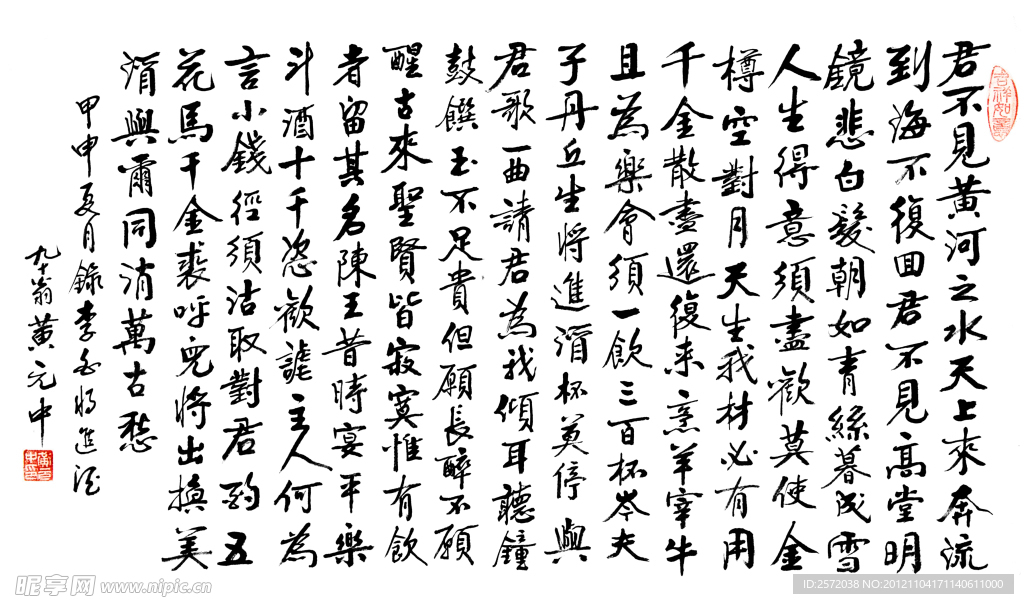 吉祥如意
君不見黃河之水天上來奔流
到海不復回君不見高堂明
鏡悲白髮朝如青絲暮成雪
人生得意須盡歡莫使金
樽空對月天生我材必有用
千金散盡還復來烹羊宰牛
且為樂會須一飲三百杯岑夫
子丹丘生將進酒杯莫停與
君歌一曲請君為我傾耳聽鐘
鼓饌玉不足貴但願長醉不願
醒古來聖賢皆寂寞惟有飲
者留其名陳王昔時宴平樂
斗酒十千恣歡謔主人何為
言小錢徑須沽取對君酌五
花馬千金裘呼兒將出換美
酒與爾同消萬古愁
甲申夏月錄李白将進酒
九十翁黃元中
昵享网 www.nipic.cn
ID:2572038 NO:20121104171140611000